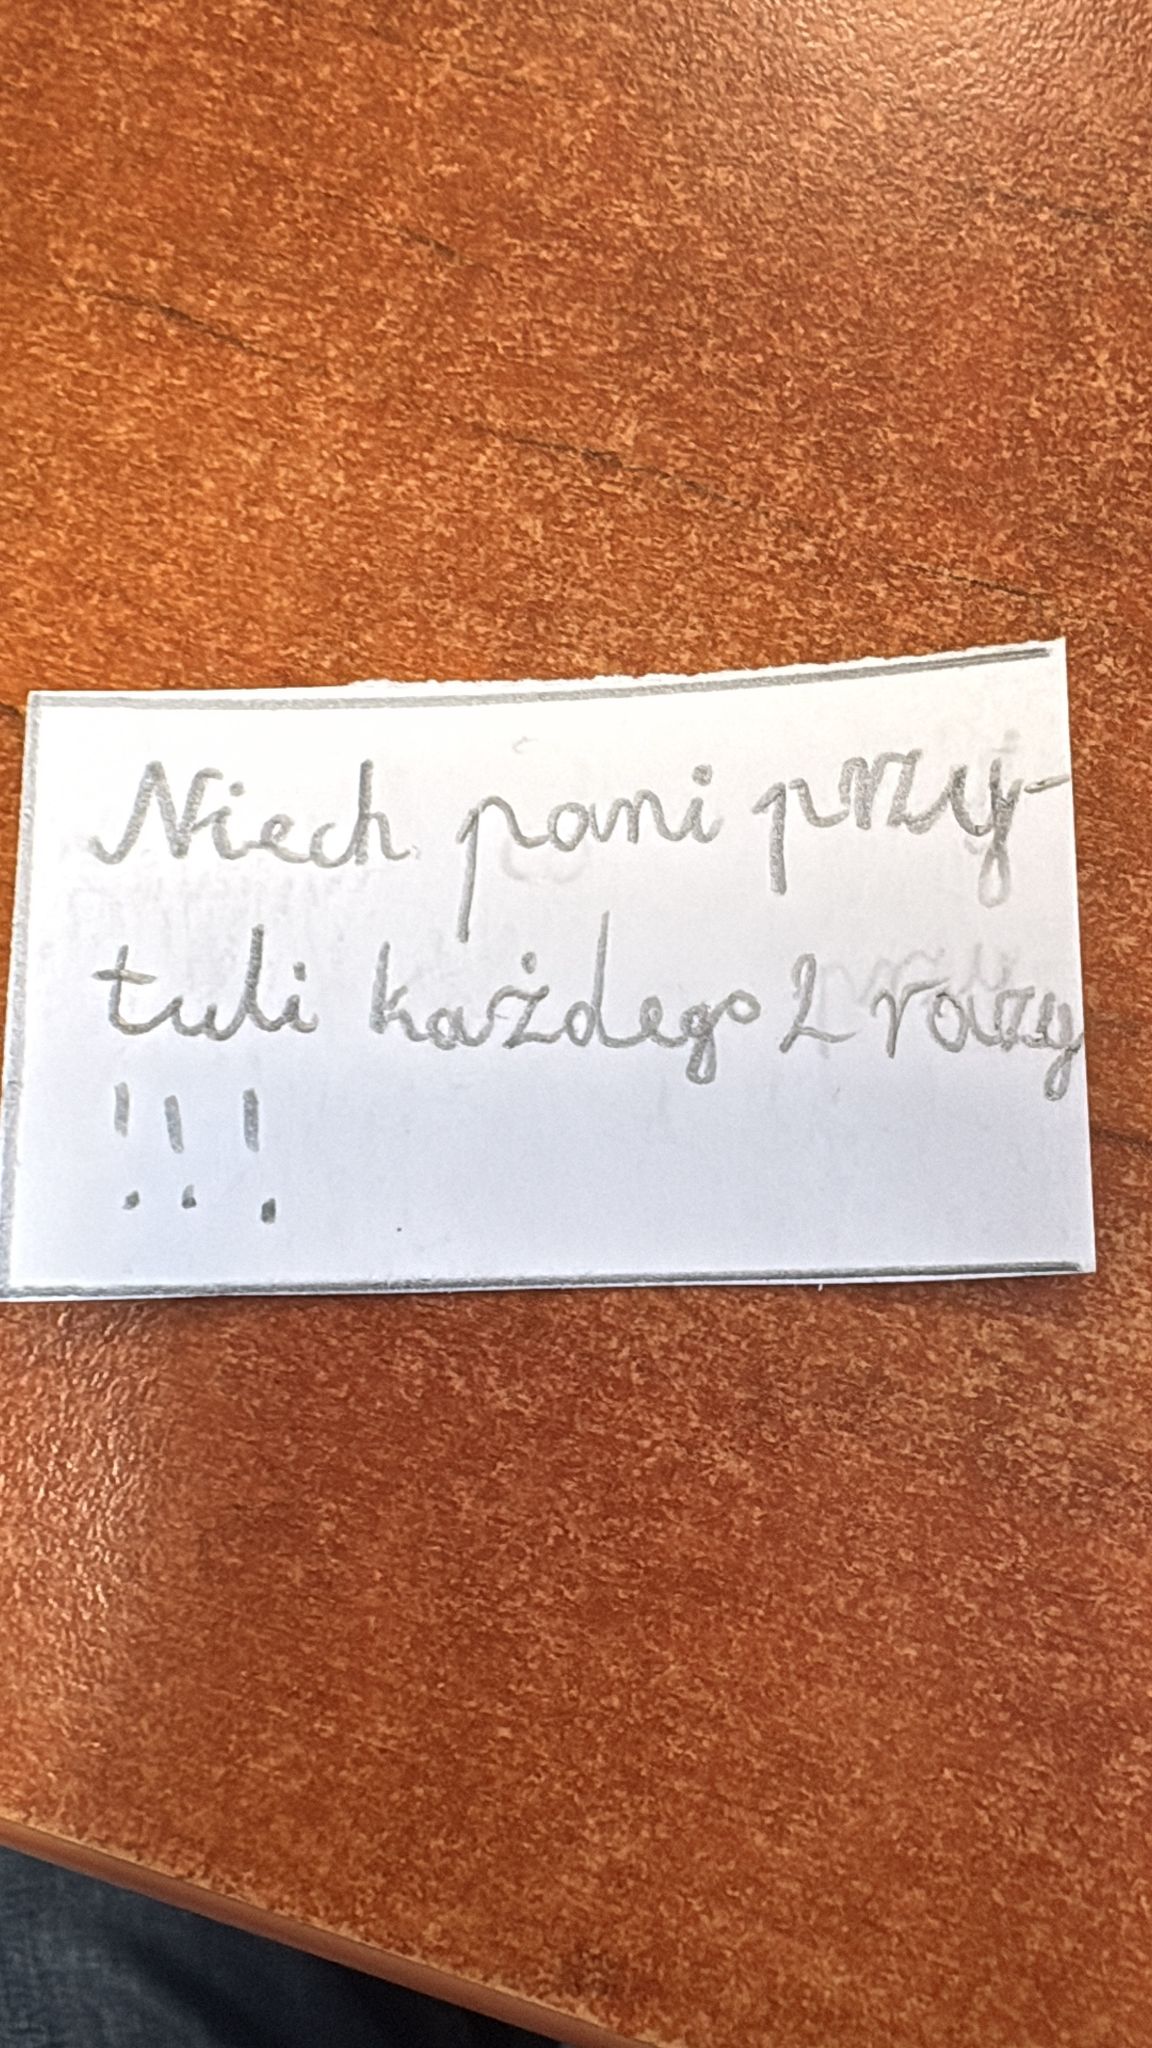 Niech pani przy-
tuli każdego 2 razy
!!!